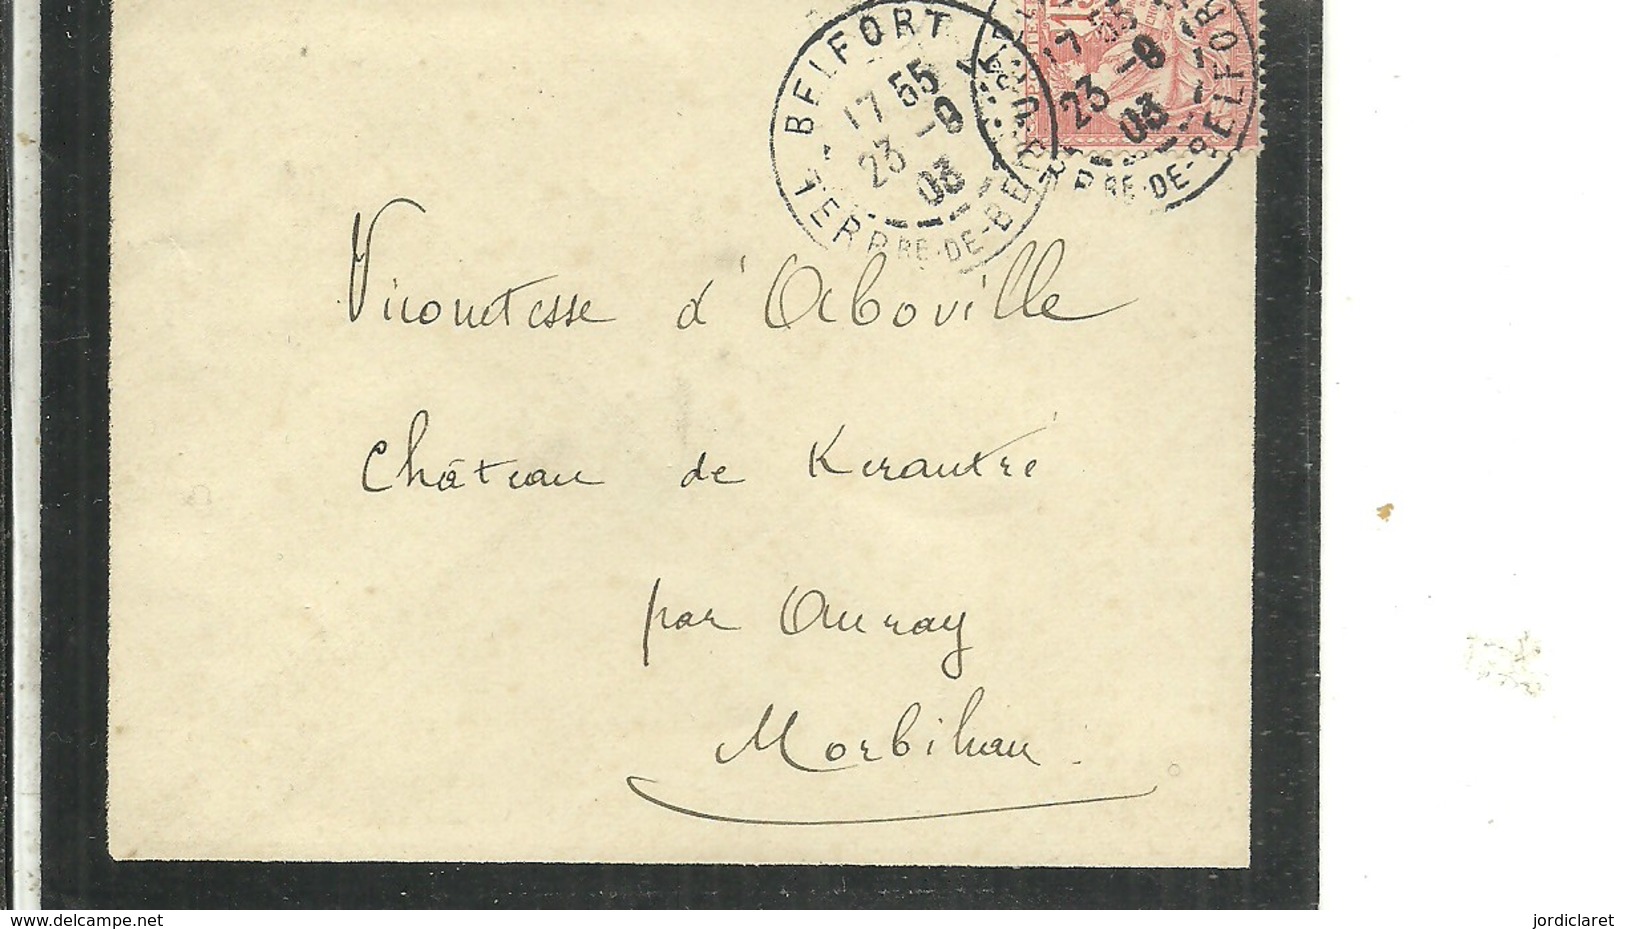 BELFORT
17 55
23 - 9
03
TERRRE-DE-BELFORT
15
17 55
23 - 9
03
RRE-DE-BELFORT
Vicomtesse d'Aboville
Château de Kerantré
par Auray
Morbihan
www.delcampe.net
jordiclaret